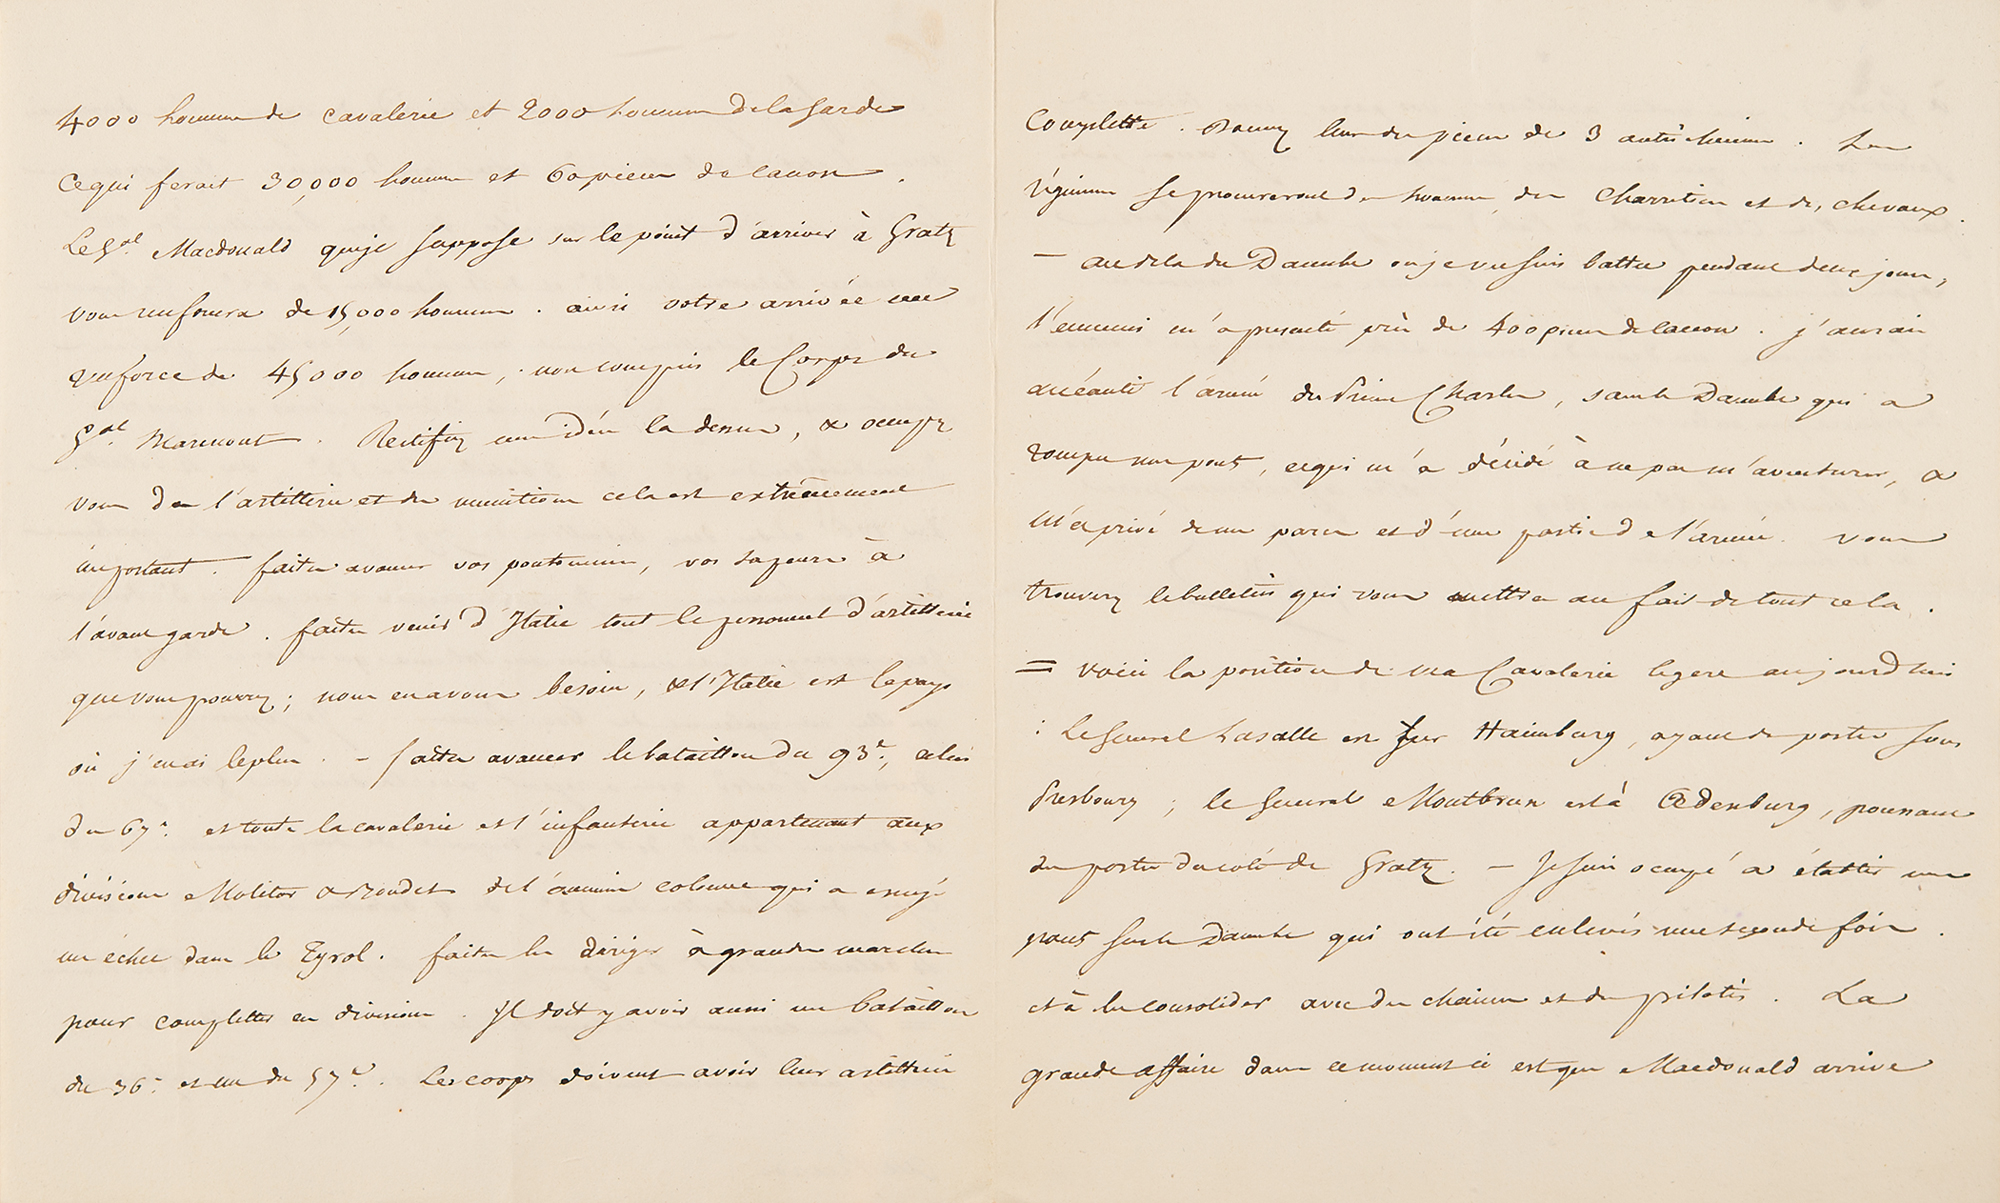 4000 hommes de cavalerie et 2000 hommes de la garde
ce qui ferait 30,000 hommes et 60 pieces de canon.
Le Gal. Macdonald que je suppose sur le point d'arriver à Gratz
vous renforcera de 15,000 hommes. ainsi votre arrivée me
renforce de 45000 hommes, non compris le Corps du
Gal. Marmont. Rectifiez mes idées la dessus, & occupez
vous de l'artillerie et des munitions cela est extrêmement
important. faites avancer vos pontonniers, vos sapeurs à
l'avant garde. faites venir d'Italie tout le personnel d'artillerie
que vous pourrez; nous en avons besoin, & l'Italie est le pays
où j'en ai le plus. - faites avancer le bataillon du 93e, celui
du 67e. et toute la cavalerie et l'infanterie appartenant aux
divisions Molitor & Boudet de l'ancienne colonne qui a essuyé
un échec dans le Tyrol. faites les diriger à grandes marches
pour completter ces divisions. Il doit y avoir aussi un bataillon
du 36e. et un du 57e. Les corps doivent avoir leur artillerie
complette. Donnez leur des pieces de 3 autrichiennes. Les
régimens se procureront des hommes, des charretiers et des chevaux.
- au dela du Danube où je me suis battu pendant deux jours,
l'ennemi m'a presenté près de 400 pieces de canon. j'aurais
anéanti l'armée du Prince Charles, sans le Danube qui a
rompu mes ponts, ce qui m'a décidé à ne pas m'aventurer, &
m'a privé de mes parcs et d'une partie de l'armée. vous
trouverez le bulletin qui vous mettra au fait de tout cela.
= voici la position de ma Cavalerie legere aujourd'hui
: le General Lasalle est sur Haimburg, ayant des postes sous
Presbourg; le General Montbrun est à Œdenburg, poussant
des postes du coté de Gratz. - Je suis occupé à établir mes
ponts sur le Danube qui ont été enlevés une seconde fois.
et à les consolider avec des chaines et des pilotis. La
grande affaire dans ce moment ci est que Macdonald arrive